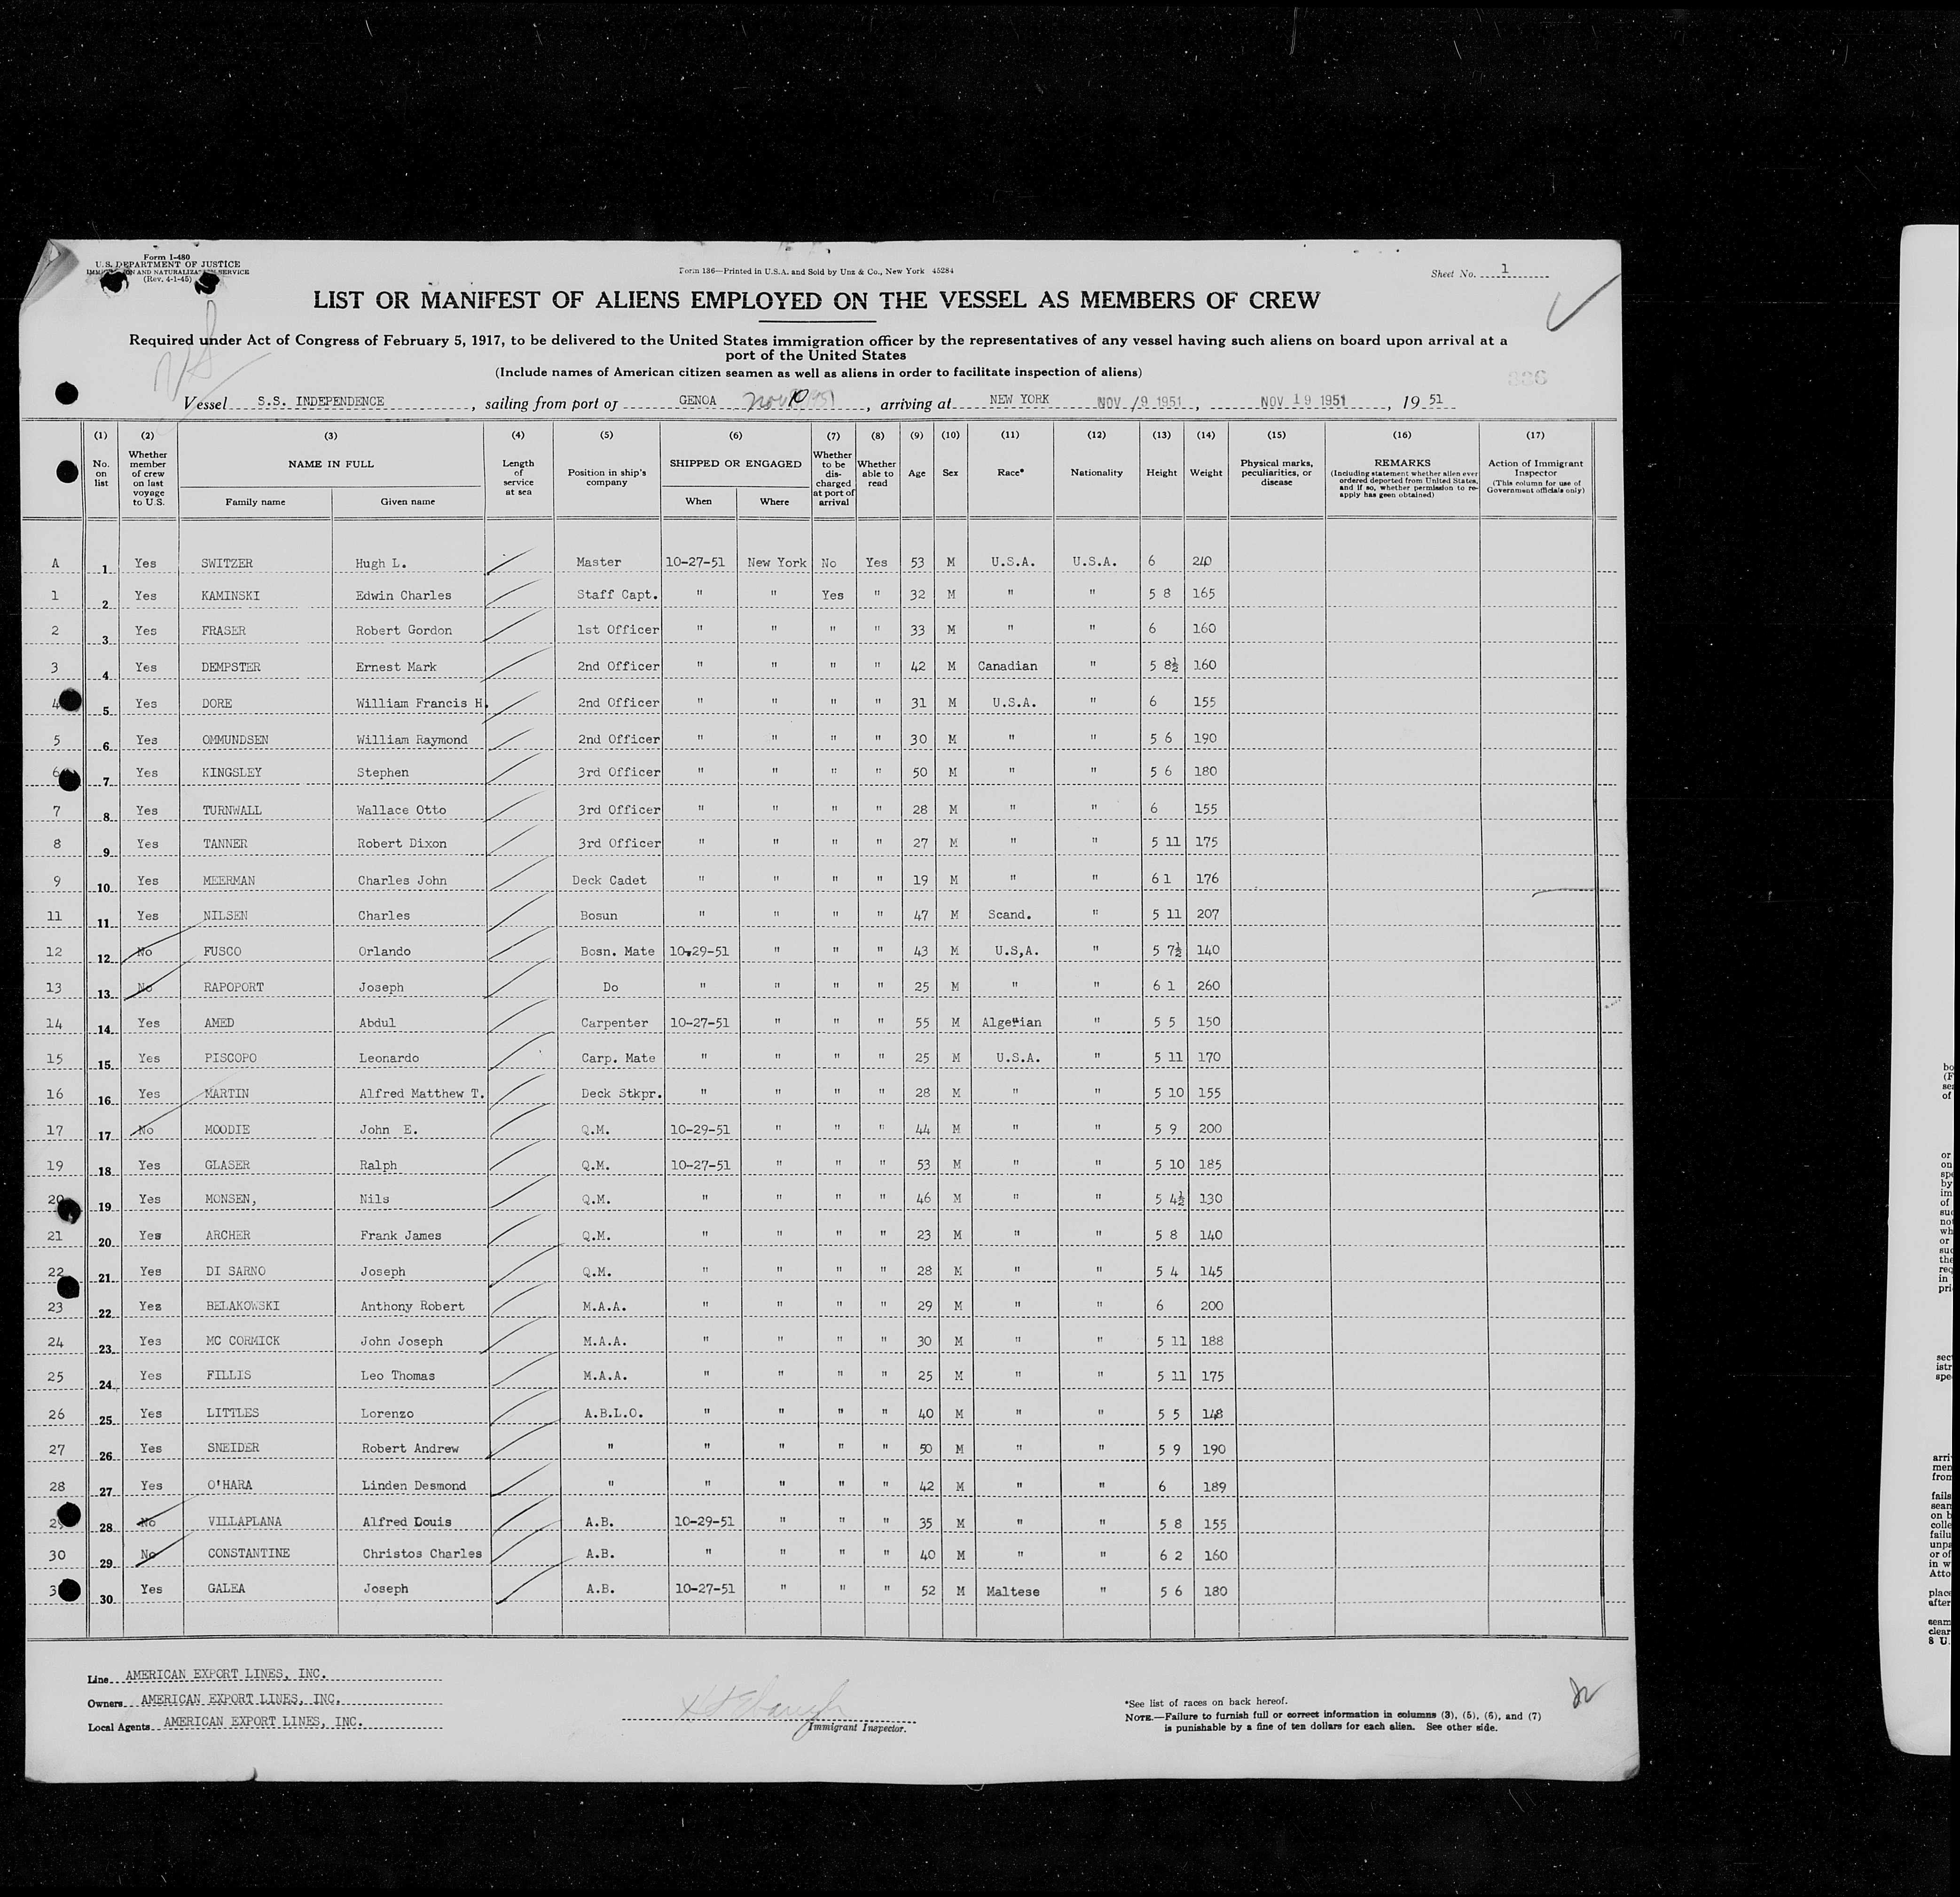 Form I-480
U. S. DEPARTMENT OF JUSTICE
IMMIGRATION AND NATURALIZATION SERVICE
(Rev. 4-1-45)
Form 136—Printed in U.S.A. and Sold by Unz & Co., New York 45284
Sheet No. 1
LIST OR MANIFEST OF ALIENS EMPLOYED ON THE VESSEL AS MEMBERS OF CREW
Required under Act of Congress of February 5, 1917, to be delivered to the United States immigration officer by the representatives of any vessel having such aliens on board upon arrival at a
port of the United States
(Include names of American citizen seamen as well as aliens in order to facilitate inspection of aliens)
336
Vessel S.S. INDEPENDENCE, sailing from port of GENOA Nov 10 1951, arriving at NEW YORK NOV 19 1951, NOV 19 1951, 19 51
(1) (2) (3) (4) (5) (6) (7) (8) (9) (10) (11) (12) (13) (14) (15) (16) (17)
No. on list Whether member of crew on last voyage to U.S. NAME IN FULL Family name Given name Length of service at sea Position in ship's company SHIPPED OR ENGAGED When Where Whether to be discharged at port of arrival Whether able to read Age Sex Race* Nationality Height Weight Physical marks, peculiarities, or disease REMARKS (Including statement whether alien ever ordered deported from United States, and if so, whether permission to re-apply has geen obtained) Action of Immigrant Inspector (This column for use of Government officials only)
A 1 Yes SWITZER Hugh L. Master 10-27-51 New York No Yes 53 M U.S.A. U.S.A. 6 240
1 2 Yes KAMINSKI Edwin Charles Staff Capt. " " Yes " 32 M " " 5 8 165
2 3 Yes FRASER Robert Gordon 1st Officer " " " " 33 M " " 6 160
3 4 Yes DEMPSTER Ernest Mark 2nd Officer " " " " 42 M Canadian " 5 8½ 160
4 5 Yes DORE William Francis H. 2nd Officer " " " " 31 M U.S.A. " 6 155
5 6 Yes OMMUNDSEN William Raymond 2nd Officer " " " " 30 M " " 5 6 190
6 7 Yes KINGSLEY Stephen 3rd Officer " " " " 50 M " " 5 6 180
7 8 Yes TURNWALL Wallace Otto 3rd Officer " " " " 28 M " " 6 155
8 9 Yes TANNER Robert Dixon 3rd Officer " " " " 27 M " " 5 11 175
9 10 Yes MEERMAN Charles John Deck Cadet " " " " 19 M " " 6 1 176
11 11 Yes NILSEN Charles Bosun " " " " 47 M Scand. " 5 11 207
12 12 No FUSCO Orlando Bosn. Mate 10-29-51 " " " 43 M U.S,A. " 5 7½ 140
13 13 No RAPOPORT Joseph Do " " " " 25 M " " 6 1 260
14 14 Yes AMED Abdul Carpenter 10-27-51 " " " 55 M Algerian " 5 5 150
15 15 Yes PISCOPO Leonardo Carp. Mate " " " " 25 M U.S.A. " 5 11 170
16 16 Yes MARTIN Alfred Matthew T. Deck Stkpr. " " " " 28 M " " 5 10 155
17 17 No MOODIE John E. Q.M. 10-29-51 " " " 44 M " " 5 9 200
19 18 Yes GLASER Ralph Q.M. 10-27-51 " " " 53 M " " 5 10 185
20 19 Yes MONSEN, Nils Q.M. " " " " 46 M " " 5 4½ 130
21 20 Yes ARCHER Frank James Q.M. " " " " 23 M " " 5 8 140
22 21 Yes DI SARNO Joseph Q.M. " " " " 28 M " " 5 4 145
23 22 Yes BELAKOWSKI Anthony Robert M.A.A. " " " " 29 M " " 6 200
24 23 Yes MC CORMICK John Joseph M.A.A. " " " " 30 M " " 5 11 188
25 24 Yes FILLIS Leo Thomas M.A.A. " " " " 25 M " " 5 11 175
26 25 Yes LITTLES Lorenzo A.B.L.O. " " " " 40 M " " 5 5 148
27 26 Yes SNEIDER Robert Andrew " " " " " 50 M " " 5 9 190
28 27 Yes O'HARA Linden Desmond " " " " " 42 M " " 6 189
29 28 No VILLAPLANA Alfred Douis A.B. 10-29-51 " " " 35 M " " 5 8 155
30 29 No CONSTANTINE Christos Charles A.B. " " " " 40 M " " 6 2 160
3 30 Yes GALEA Joseph A.B. 10-27-51 " " " 52 M Maltese " 5 6 180
Line AMERICAN EXPORT LINES, INC.
Owners AMERICAN EXPORT LINES, INC.
Local Agents AMERICAN EXPORT LINES, INC.
Immigrant Inspector.
*See list of races on back hereof.
NOTE.—Failure to furnish full or correct information in columns (3), (5), (6), and (7)
is punishable by a fine of ten dollars for each alien. See other side.